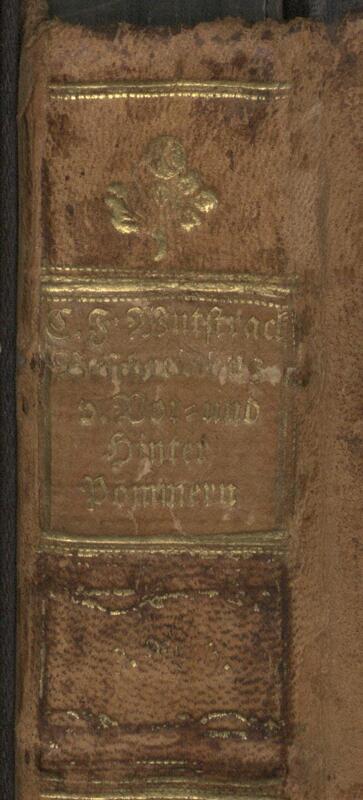 C. F. Wutstrack
Beschreibung
v. Vor- und
Hinter
Pommern